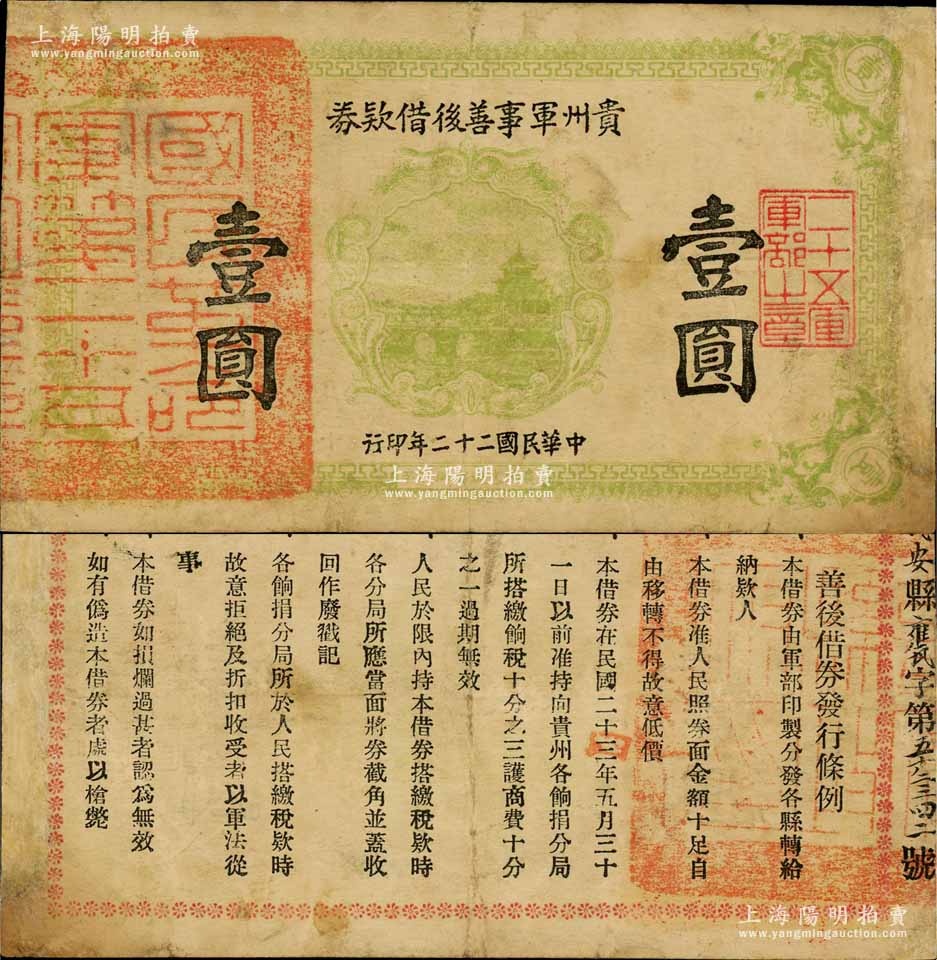 上海陽明拍賣
www.yangmingauction.com
貴州軍事善後借欵券
壹圓
壹圓
二十五軍
軍部之章
中華民國二十二年印行
上海陽明拍賣
www.yangmingauction.com
安縣
字第
號
善後借券發行條例
本借券由軍部印製分發各縣轉給
納欵人
本借券准人民照券面金額十足自
由移轉不得故意低價
本借券在民國二十三年五月三十
一日以前准持向貴州各餉捐分局
所搭繳餉稅十分之三護商費十分
之一過期無效
人民於限內持本借券搭繳稅欵時
各分局所應當面將券截角並蓋收
回作廢戳記
各餉捐分局所於人民搭繳稅欵時
故意拒絕及折扣收受者以軍法從
事
本借券如損爛過甚者認爲無效
如有僞造本借券者處以槍斃
上海陽明拍賣
www.yangmingauction.com